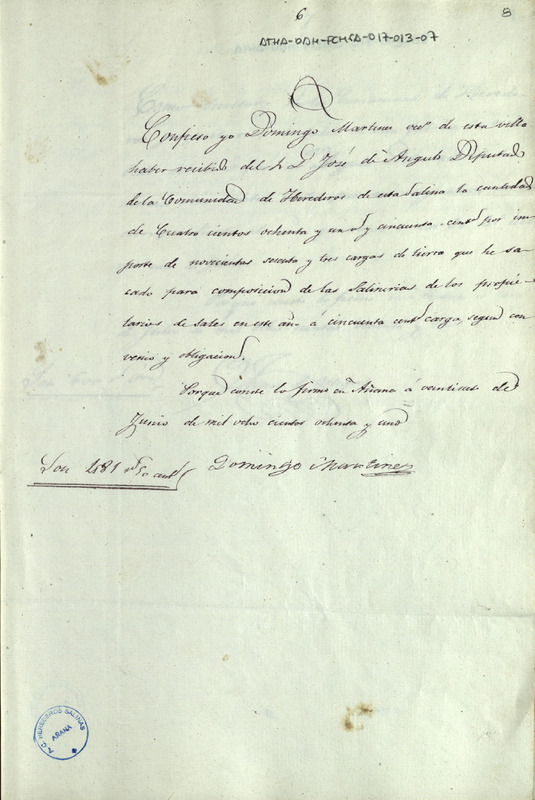 6
8
ATHA-DAH-FCHSA-017-013-07
Confieso yo Domingo Martinez vecº de esta villa
haber recibido del Sr. D. José de Angulo Diputado
de la Comunidad de Herederos de esta Salina la cantidad
de Cuatro cientos ochenta y un rs y cincuenta cents por im
porte de novecientas sesenta y tres cargas de tierra que he sa
cado para composicion de las Salinerias de los propie
tarios de sales en este año á cincuenta cents carga, segun con
venio y obligacion.
Porque conste lo firmo en Añana á veintiseis de
Junio de mil ocho cientos ochenta y uno
Son 481 rs 50 cents
Domingo Martinez
T.C. HEREDEROS SALINAS
AÑANA